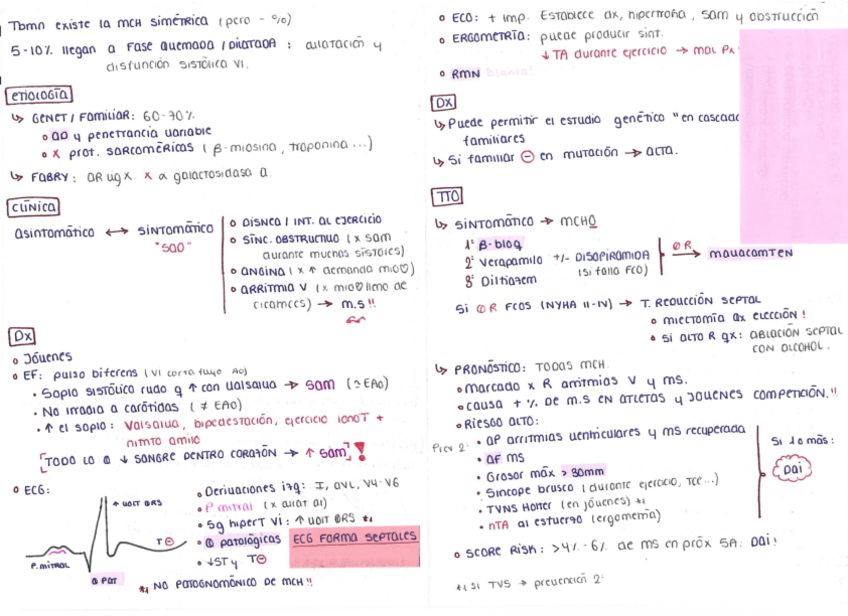 Tbmn existe la MCH simétrica (pero - %)
5-10% llegan a fase quemada / dilatada: dilatación y
disfunción sistólica VI.
etiología
↳ Genet / Familiar: 60-70%
• AD y penetrancia variable
• x prot. sarcoméricas (β-miosina, troponina ...)
↳ Fabry: AR lig X. x α galactosidasa a.
Clínica
asintomático ↔ sintomático
"SAD"
• Disnea / int. al ejercicio
• Sínc. obstructivo (x SAM
durante muchas sístoles)
• Angina (x ↑ demanda mio♡)
• Arritmia V (x mio♡ lleno de
cicatrices) → M.S!!
Dx
• Jóvenes
• EF: pulso biferens (VI corta flujo Ao)
• Soplo sistólico rudo q ↑ con valsalva → SAM (≃ EAo)
• No irradia a carótidas (≠ EAo)
• ↑ el soplo: Valsalva, bipedestación, ejercicio isnoT +
nitrito amilo
[TODO LO Q ↓ SANGRE DENTRO CORAZÓN → ↑ SAM] !
• ECG:
↑ volt QRS
T ⊖
P.mitral
Q pat
• Derivaciones izq: I, aVL, V4-V6
• P mitral (x dilat AI)
• Sg hiperT VI: ↑ volt QRS *1
• Q patológicas ECG FORMA SEPTALES
• ↓ST y T⊖
*1 NO PATOGNOMÓNICO DE MCH!!
• ECO: + imp. Establece dx, hipertrofia, SAM y obstrucción
• ERGOMETRÍA: puede producir sint.
↓TA durante ejercicio → mal Px
• RMN
Dx
↳ Puede permitir el estudio genético "en cascada
familiares
↳ Si familiar ⊖ en mutación → ALTA.
TTO
↳ SINTOMÁTICO → MCHO
1º β-bloq
2º Verapamilo
3º Diltiazem
+/- DISOPIRAMIDA
(si falla FCO)
⊘ R → MAVACAMTEN
Si ⊘ R FCOS (NYHA II-IV) → T. REDUCCIÓN SEPTAL
• miectomía qx elección!
• Si alto R qx: ABLACIÓN SEPTAL
CON ALCOHOL.
↳ PRONÓSTICO: TODAS MCH.
• marcado x R arritmias V y MS.
• causa + % de M.S en atletas y jóvenes competición.!!
• Riesgo alto:
Prev 2ª
• AP arritmias ventriculares y MS recuperada
• AF MS
• Grosor máx > 30mm
• Síncope brusco (durante ejercicio, TCE...)
• TVNS Holter (en jóvenes) *1
• nTA al esfuerzo (ergometría)
Si 1 o más:
DAI
• SCORE RISK: >4% - 6% de MS en próx 5A: DAI!
*1 Si TVS → prevención 2ª